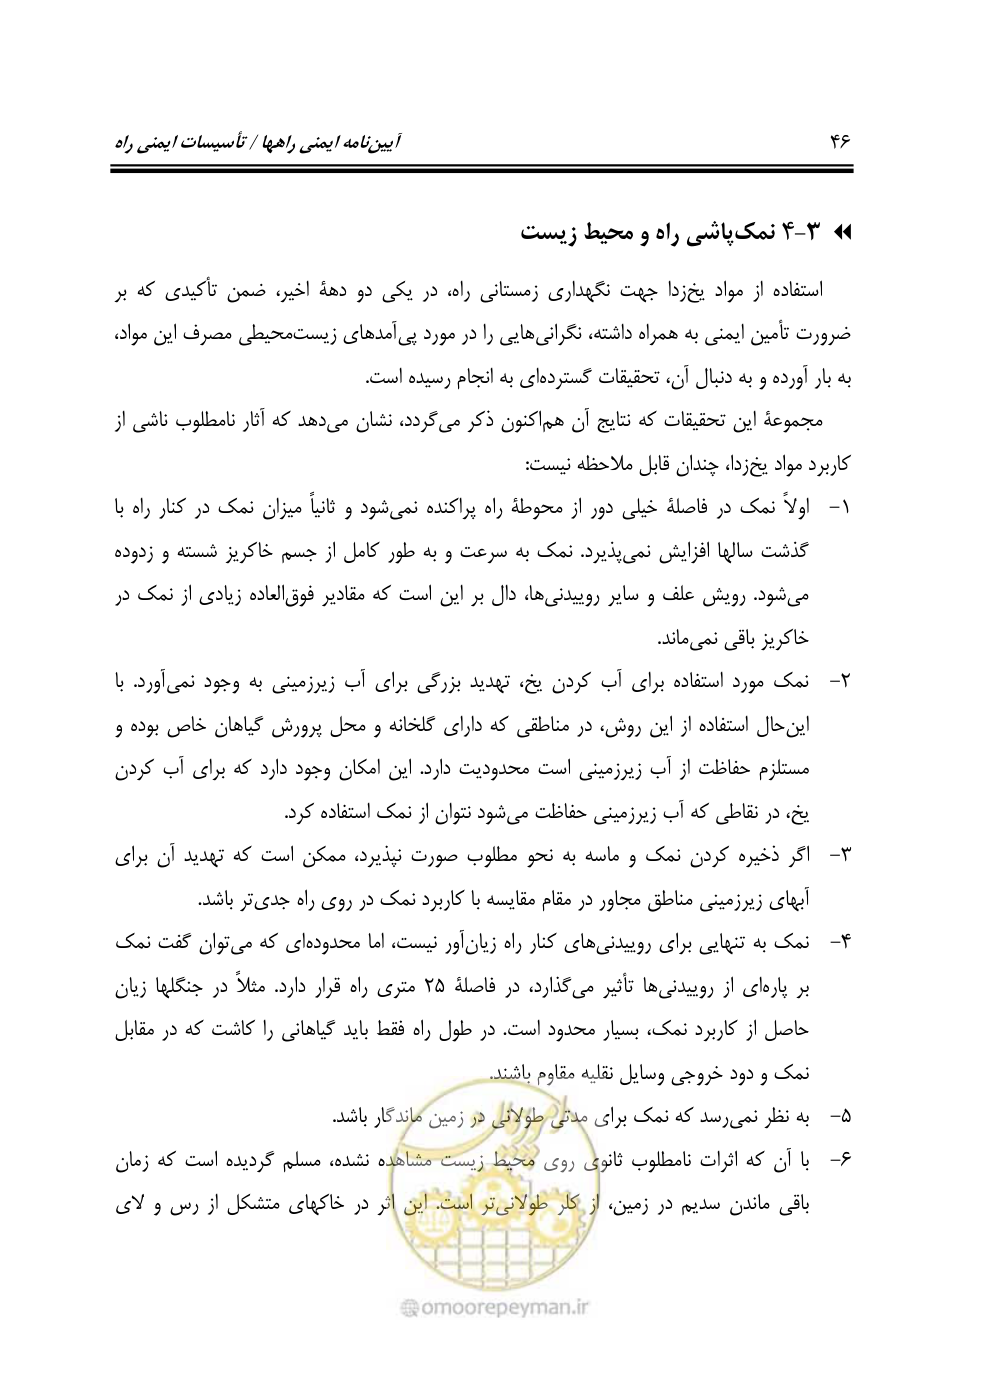 ۴۶
آیین‌نامه ایمنی راهها / تأسیسات ایمنی راه
۴-۳ نمک‌پاشی راه و محیط زیست
استفاده از مواد یخ‌زدا جهت نگهداری زمستانی راه، در یکی دو دههٔ اخیر، ضمن تأکیدی که بر
ضرورت تأمین ایمنی به همراه داشته، نگرانی‌هایی را در مورد پی‌آمدهای زیست‌محیطی مصرف این مواد،
به بار آورده و به دنبال آن، تحقیقات گسترده‌ای به انجام رسیده است.
مجموعهٔ این تحقیقات که نتایج آن هم‌اکنون ذکر می‌گردد، نشان می‌دهد که آثار نامطلوب ناشی از
کاربرد مواد یخ‌زدا، چندان قابل ملاحظه نیست:
۱- اولاً نمک در فاصلهٔ خیلی دور از محوطهٔ راه پراکنده نمی‌شود و ثانیاً میزان نمک در کنار راه با
گذشت سالها افزایش نمی‌پذیرد. نمک به سرعت و به طور کامل از جسم خاکریز شسته و زدوده
می‌شود. رویش علف و سایر روییدنی‌ها، دال بر این است که مقادیر فوق‌العاده زیادی از نمک در
خاکریز باقی نمی‌ماند.
۲- نمک مورد استفاده برای آب کردن یخ، تهدید بزرگی برای آب زیرزمینی به وجود نمی‌آورد. با
این‌حال استفاده از این روش، در مناطقی که دارای گلخانه و محل پرورش گیاهان خاص بوده و
مستلزم حفاظت از آب زیرزمینی است محدودیت دارد. این امکان وجود دارد که برای آب کردن
یخ، در نقاطی که آب زیرزمینی حفاظت می‌شود نتوان از نمک استفاده کرد.
۳- اگر ذخیره کردن نمک و ماسه به نحو مطلوب صورت نپذیرد، ممکن است که تهدید آن برای
آبهای زیرزمینی مناطق مجاور در مقام مقایسه با کاربرد نمک در روی راه جدی‌تر باشد.
۴- نمک به تنهایی برای روییدنی‌های کنار راه زیان‌آور نیست، اما محدوده‌ای که می‌توان گفت نمک
بر پاره‌ای از روییدنی‌ها تأثیر می‌گذارد، در فاصلهٔ ۲۵ متری راه قرار دارد. مثلاً در جنگلها زیان
حاصل از کاربرد نمک، بسیار محدود است. در طول راه فقط باید گیاهانی را کاشت که در مقابل
نمک و دود خروجی وسایل نقلیه مقاوم باشند.
۵- به نظر نمی‌رسد که نمک برای مدتی طولانی در زمین ماندگار باشد.
۶- با آن که اثرات نامطلوب ثانوی روی محیط زیست مشاهده نشده، مسلم گردیده است که زمان
باقی ماندن سدیم در زمین، از کلر طولانی‌تر است. این اثر در خاکهای متشکل از رس و لای
امور پیمان
@omoorepeyman.ir